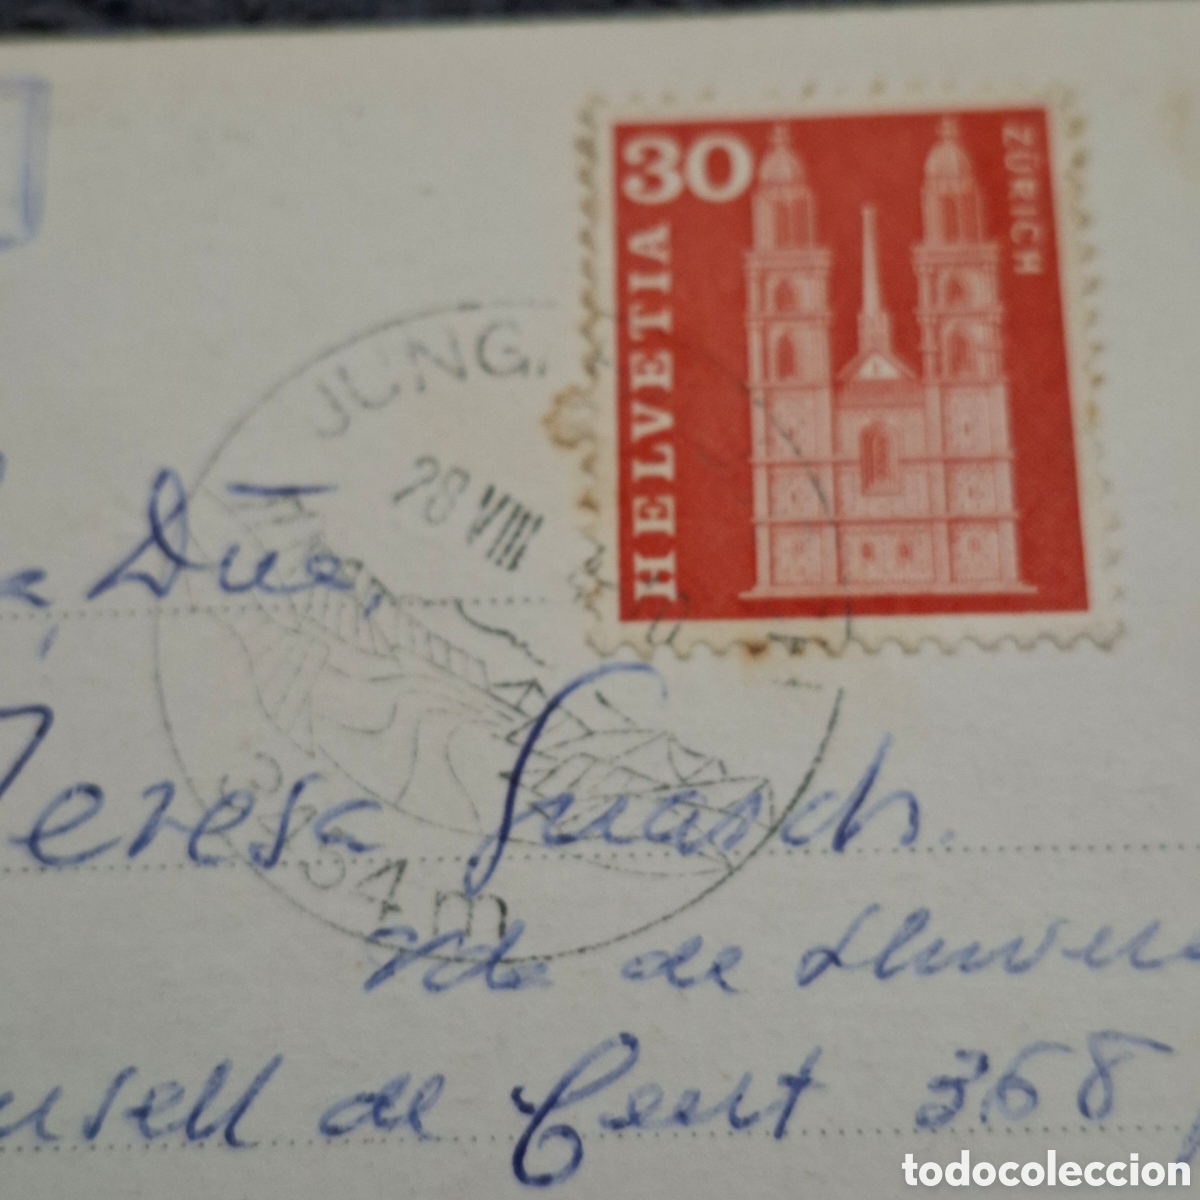 30
HELVETIA
ZÜRICH
JUNG
28 VIII
3454 m
Teresa Guasch.
Vda de
Consell de Cent 368
todocoleccion